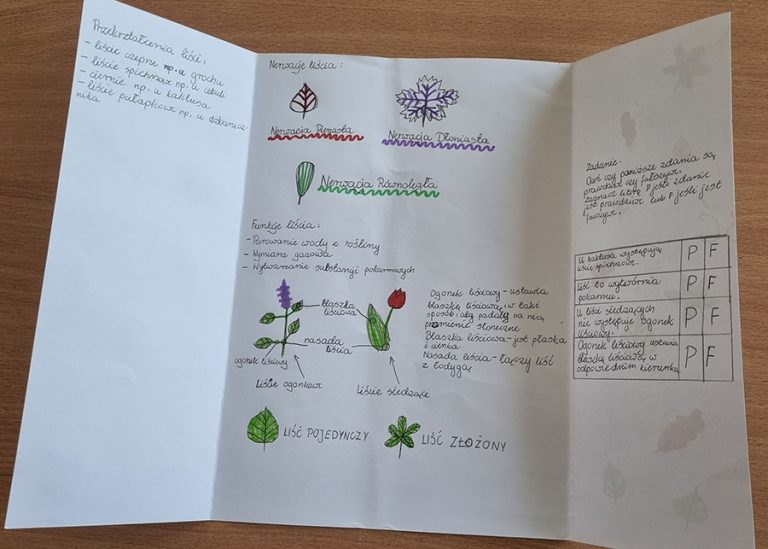 Przekształcenia liści:
- liście czepne np. u grochu
- liście spichrzowe np. u cebuli
- ciernie np. u kaktusa
- liście pułapkowe np. u dzbanecz
nika
Nerwacje liścia:
Nerwacja Pierzasta
Nerwacja Dłoniasta
Nerwacja Równoległa
Funkcje liścia:
- Parowanie wody z rośliny
- Wymiana gazowa
- Wytwarzanie substancji pokarmowych
blaszka
liściowa
nasada
liścia
ogonek liściowy
Liście ogonkowe
Liście siedzące
Ogonek liściowy - ustawia
blaszkę liściową w taki
sposób, aby padały na nią
promienie słoneczne
Blaszka liściowa - jest płaska
i cienka
Nasada liścia - łączy liść
z łodygą
LIŚĆ POJEDYNCZY
LIŚĆ ZŁOŻONY
Zadanie.
Oceń czy poniższe zdania są
prawdziwe czy fałszywe.
Zaznacz literę P jeśli zdanie
jest prawdziwe lub F jeśli jest
fałszywe.
U kaktusa występują
liście spichrzowe. P F
Liść to wytwórnia
pokarmu. P F
U liści siedzących
nie występuje ogonek
liściowy. P F
Ogonek liściowy ustawia
blaszkę liściową w
odpowiednim kierunku P F